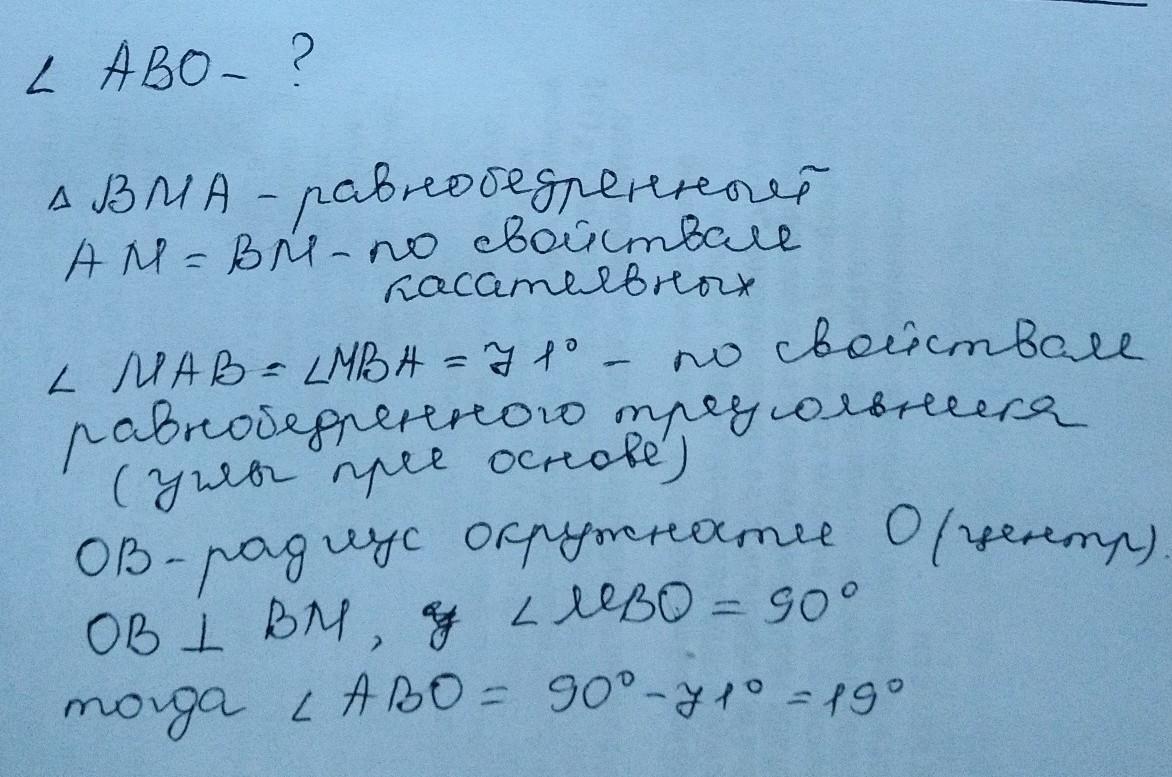 ∠ ABO - ?
Δ BMA - равнобедренный
AM = BM - по свойствам
касательных
∠ MAB = ∠MBA = 71° - по свойствам
равнобедренного треугольника
(углы при основе)
OB - радиус окружности O (центр).
OB ⊥ BM, ∠ MBO = 90°
тогда ∠ ABO = 90° - 71° = 19°